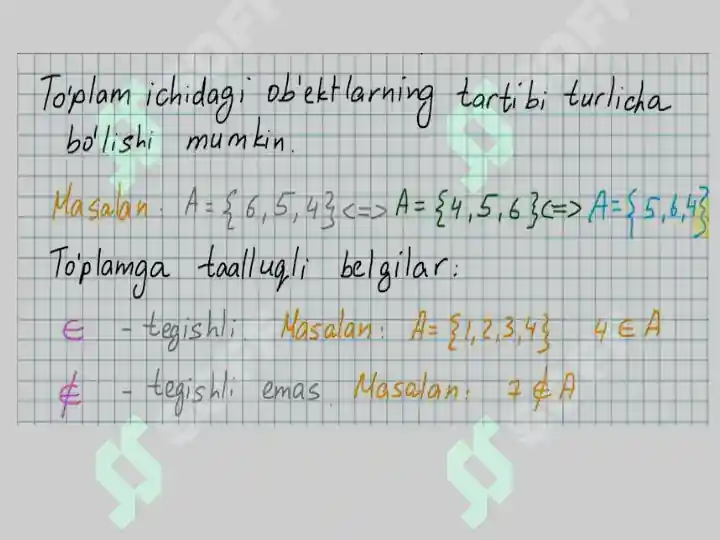 To'plam ichidagi ob'ektlarning tartibi turlicha
bo'lishi mumkin.
Masalan: A={6,5,4}<=> A={4,5,6}<=> A={5,6,4}
To'plamga taalluqli belgilar:
∈ - tegishli Masalan: A={1,2,3,4} 4 ∈ A
∉ - tegishli emas Masalan: 7 ∉ A